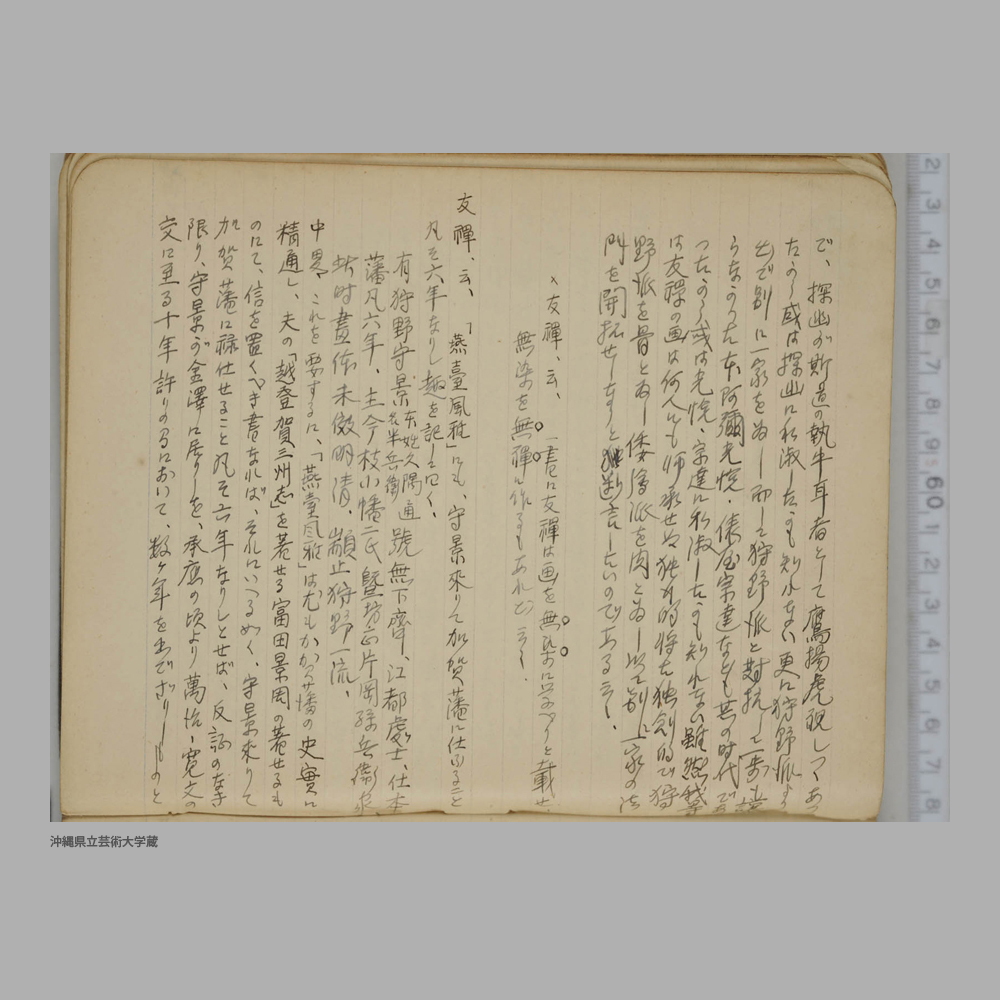 で、探幽が斯道の執牛耳者として鷹揚虎視しつゝあつ
たから或は探幽に私淑したかも知れない更に狩野派より
出で別に一家を為し而して狩野派と対抗して一歩も譲
らなかつた本阿彌光悦・俵屋宗達なども其の時代であ
つたから或は光悦、宗達に私淑したかも知れない雖然
は友禪の画は何人にも師承せぬ独創的で狩
野派を骨と為し倭繪派を肉と為し以て別に一家の法
門を開拓せしものと断言したいのである云々、
×友禪、云、一書に友禪は画を無染に学べりと載せ
無染を無禪に作るもあれど云々、
友禪、云、「燕臺風雅」にも、守景來りて加賀藩に仕ふること
凡そ六年なりし趣を記して曰く、
有狩野守景本姓久隅通名半兵衛號無下齋、江都處士、仕本
藩凡六年、主今枝小幡二氏曁片岡孫兵衛家
此時畫体未倣明清、顓止狩野一流、
中畧、これを要するに、「燕臺風雅」はもかゝる藩の史實に
精通し、夫の「越登賀三州志」を著せる富田景周の著せるも
のにて、信を置くべき書なれば、それにいへる如く、守景來りて
加賀藩に禄仕せること凡そ六年なりしとせば、反証のなき
限り、守景が金澤に居りしを、承應の頃より萬治・寛文の
交に至る十年許りの間において、数ヶ年を出でざりしものと
2 3 4 5 6 7 8 9 60 1 2 3 4 5 6 7 8
沖縄県立芸術大学蔵